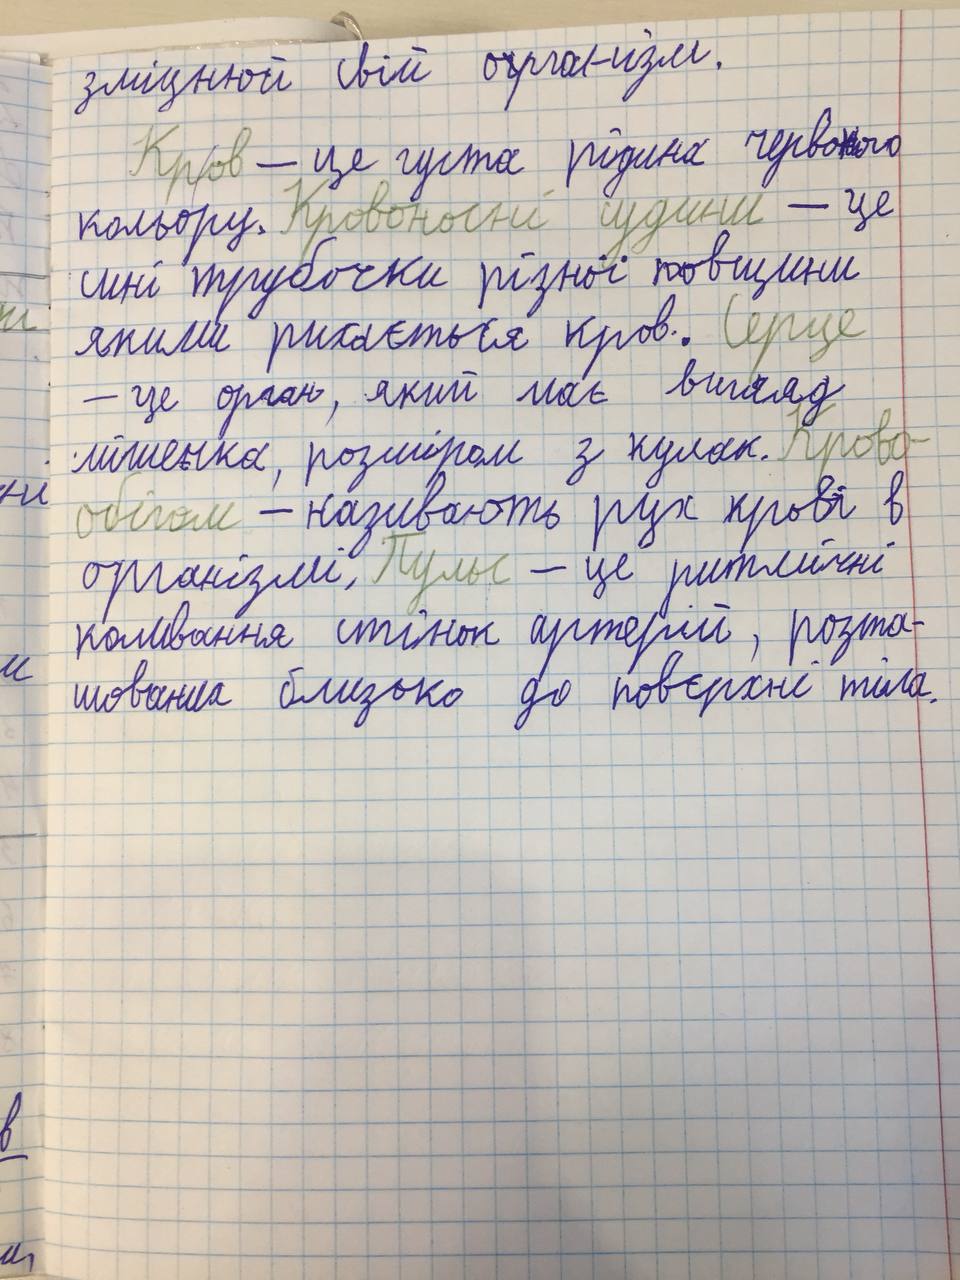 зміцнюй свій організм.
Кров — це густа рідина червоного
кольору. Кровоносні судини — це
сині трубочки різної товщини
якими рихається кров. Серце
— це орган, який має вигляд
мішечка, розміром з кулак. Крово-
обігом — називають рух крові в
організмі, Пульс — це ритмічні
коливання стінок артерій, розта-
шованих близько до поверхні тіла.